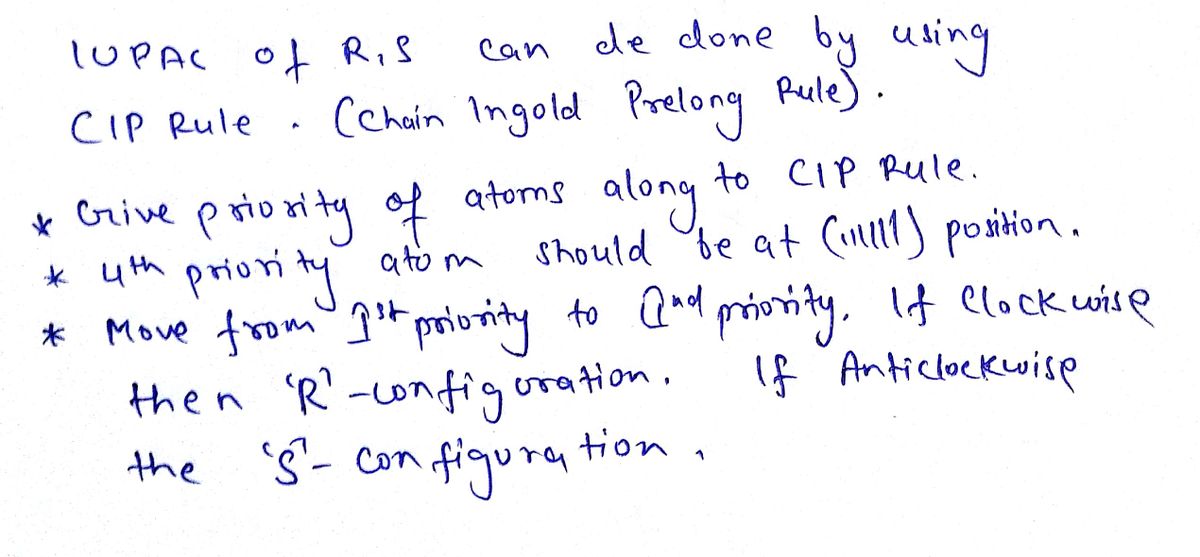 IUPAC of R,S can de done by using
CIP Rule. (Chain Ingold Prelong Rule).
* Give priority of atoms along to CIP Rule.
* 4th priority atom should be at (ıııııı) position.
* Move from 1st priority to 2nd priority. If Clockwise
then 'R'-configuration. If Anticlockwise
the 'S'- configuration.